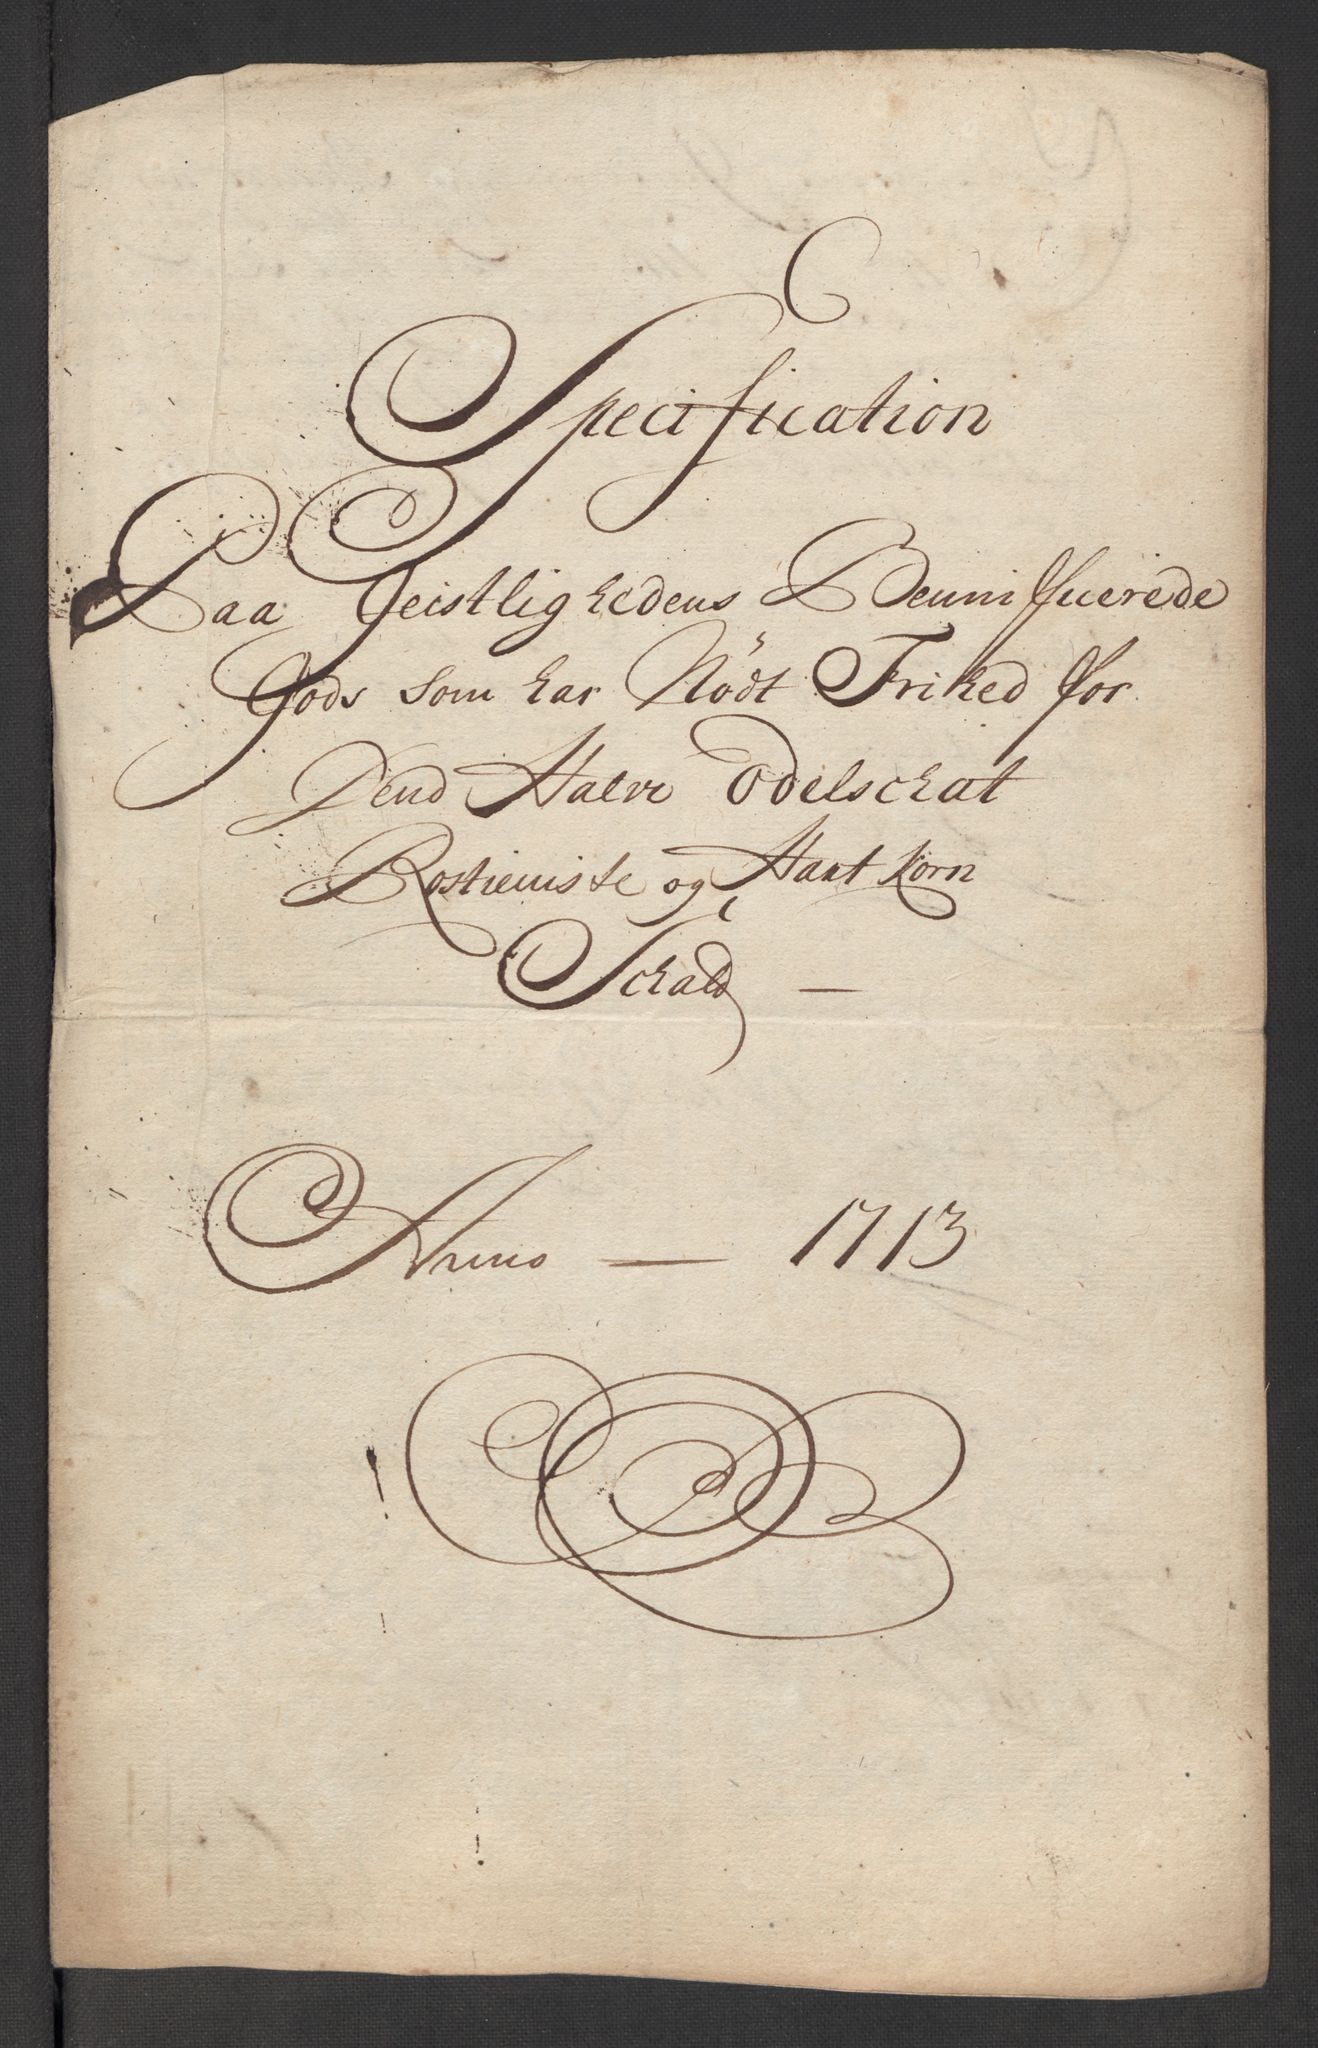 Specification
Paa Geistlighedens Bennificerede
Gods som har Nödt Frihed for
Dend Halve Odelschat
Rostieniste og Hartkorn
Schatt —
Anno — 1713